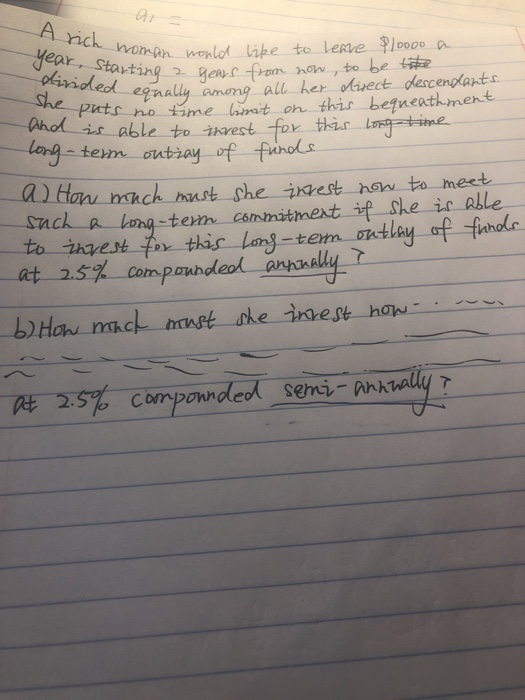 a₁ =
A rich woman would like to leave $10000 a
year, starting 2 years from now, to be take
divided equally among all her direct descendants.
She puts no time limit on this bequeathment
and is able to invest for this long-time
long-term outlay of funds
a) How much must she invest now to meet
such a long-term commitment if she is able
to invest for this long-term outlay of funds
at 2.5% compounded annually?
b) How much must she invest now
at 2.5% compounded semi-annually?